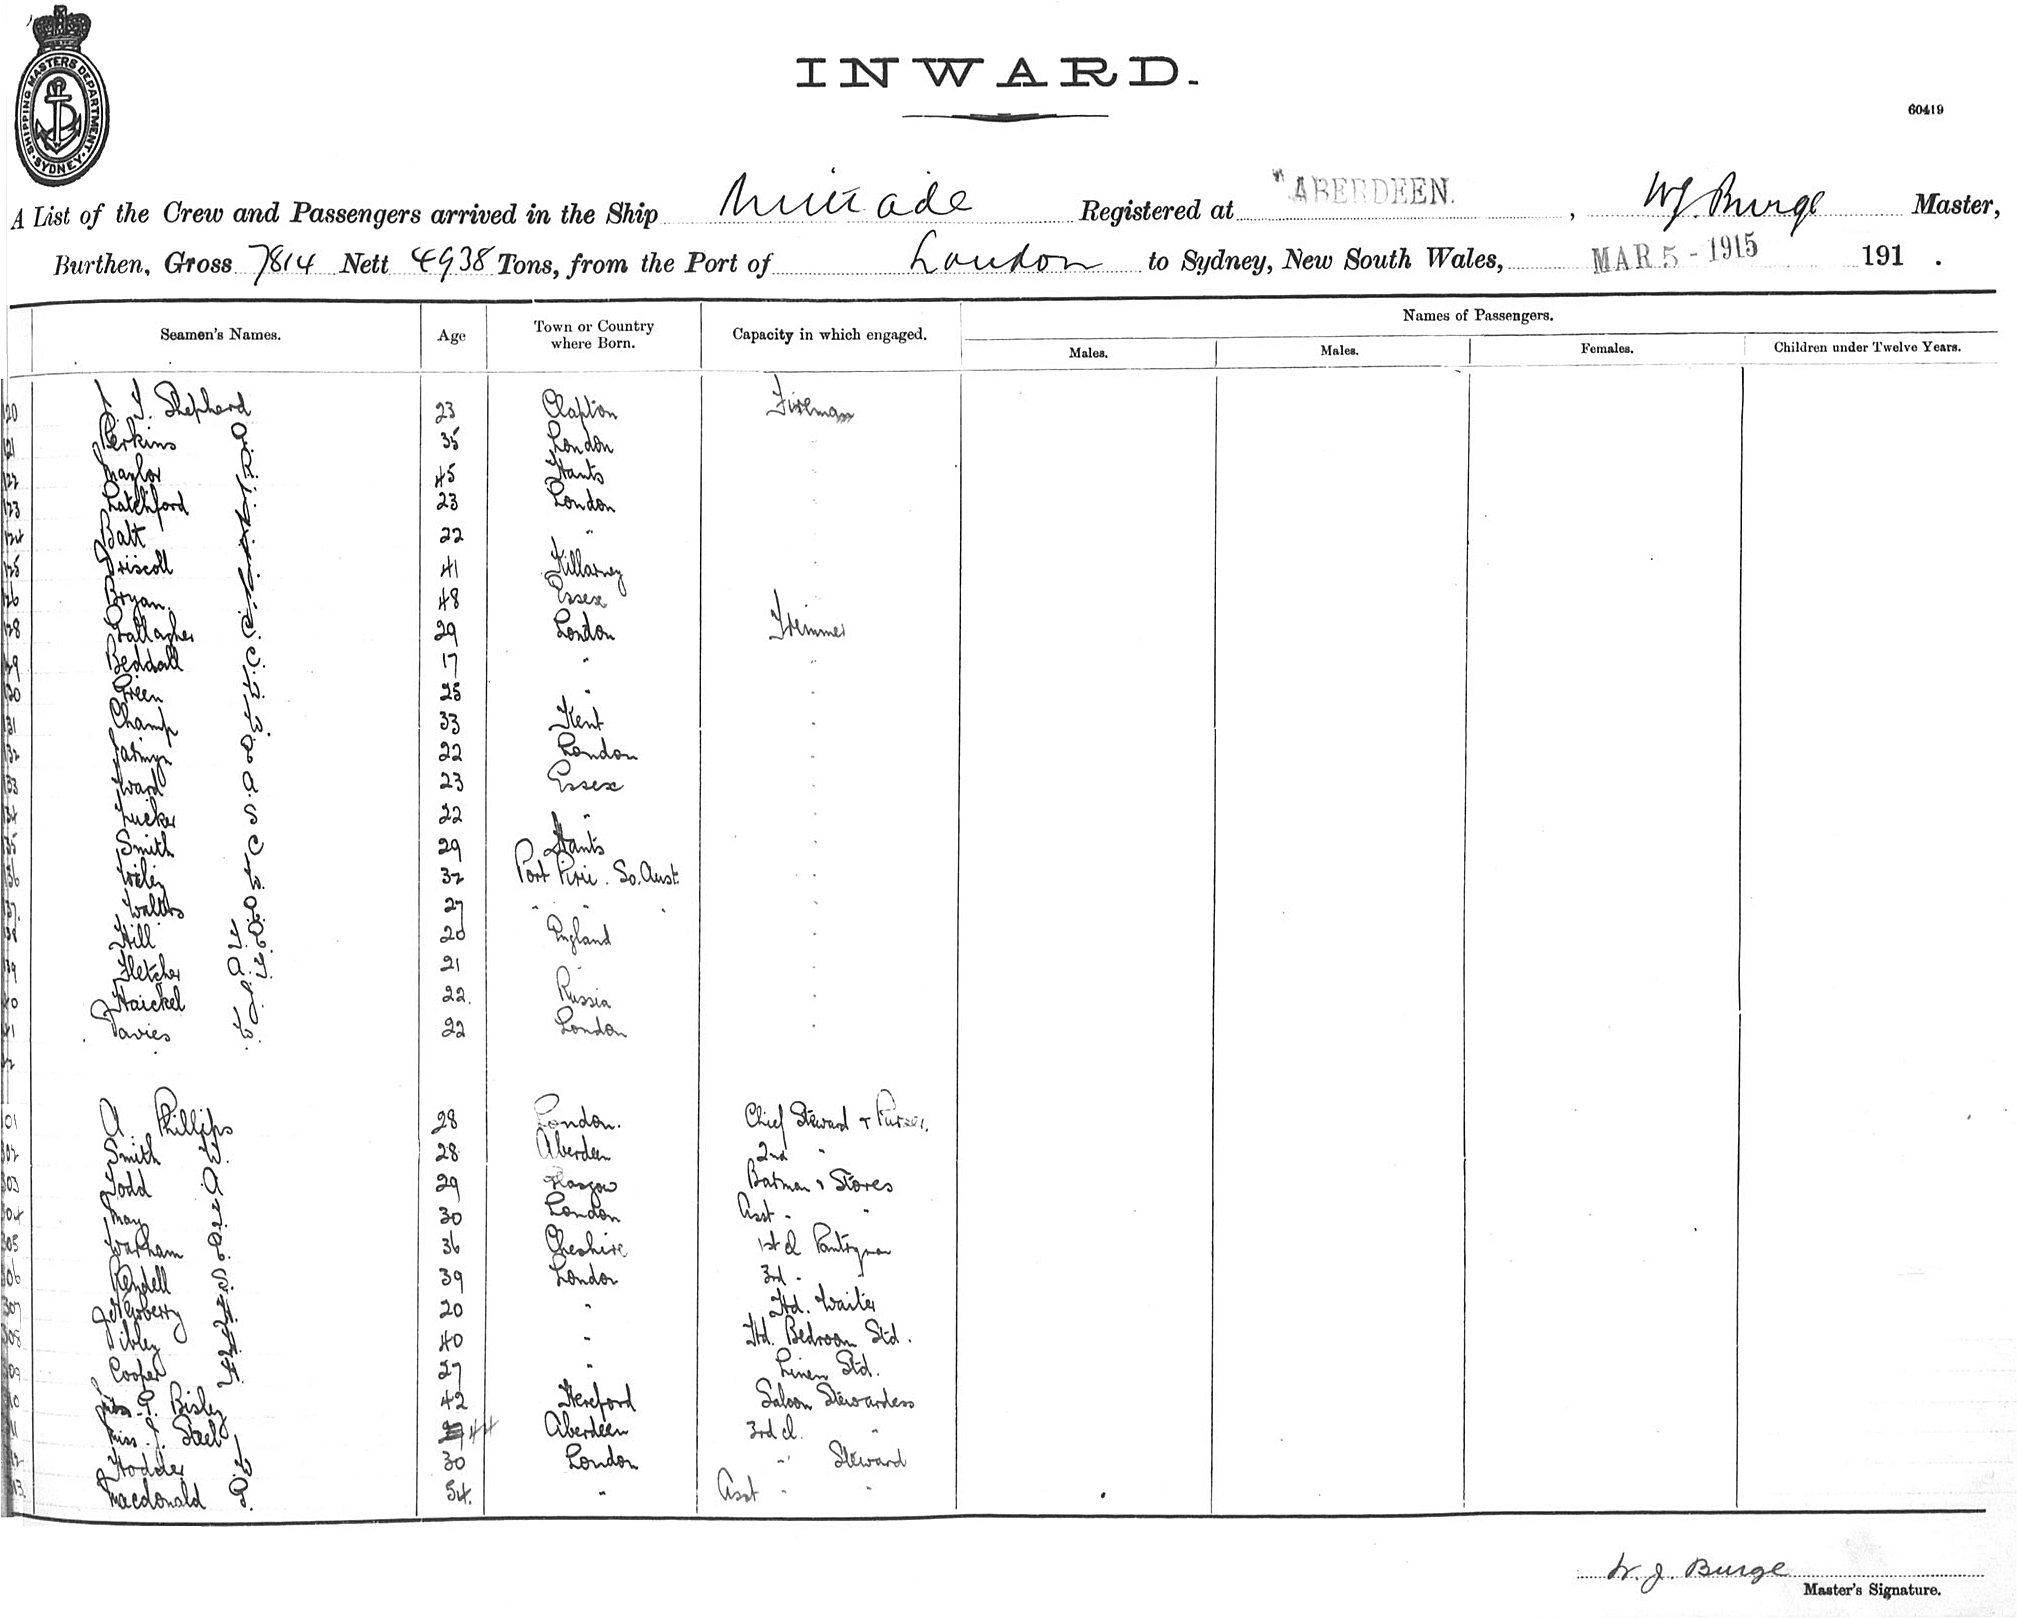 SHIPPING MASTERS DEPARTMENT. SYDNEY.
INWARD.
60419
A List of the Crew and Passengers arrived in the Ship Miltiade Registered at "ABERDEEN. , W.J. Burge Master,
Burthen, Gross 7814 Nett 4938 Tons, from the Port of London to Sydney, New South Wales, MAR 5 - 1915 191 .
Names of Passengers.
Seamen's Names. Age Town or Country where Born. Capacity in which engaged. Males. Males. Females. Children under Twelve Years.
20 J. Shepherd 23 Clapton Fireman
21 Perkins 35 London "
22 Naylor 45 Hants "
23 Latchford 23 London "
24 Batt 22 " "
25 Driscoll 41 Killarney "
26 Bryan. 48 Essex "
28 Gallagher 29 London Trimmer
29 Beddall 17 " "
30 Green 25 " "
31 Champ 33 Kent "
32 22 London "
33 Ward 23 Essex "
34 Tucker 22 " "
35 Smith 29 Hants "
36 32 Port Pirie. So. Aust. "
37 Walters 27 " " "
38 Hill 20 England "
39 Fletcher 21 " "
40 Haickel 22. Russia "
41 Davies 22 London "
01 A Phillips 28 London. Chief Steward & Purser.
02 Smith 28 Aberdeen 2nd "
03 Todd 29 Glasgow Barman & Stores
04 May 30 London Asst " "
05 Warham 36 Cheshire 1st cl Pantryman
06 Kendell 39 London 3rd " "
307 Newberry 20 " Hd. Waiter
08 Sibley 40 " Hd. Bedroom Std.
09 Cooper 27 " Linen Std.
10 Bisley 42 Hereford Saloon Stewardess
11 Miss J. Steel 44 Aberdeen 3rd cl. "
12 Hodder 30 London " Steward
13. Macdonald 54. " Asst " "
W. J. Burge
Master's Signature.